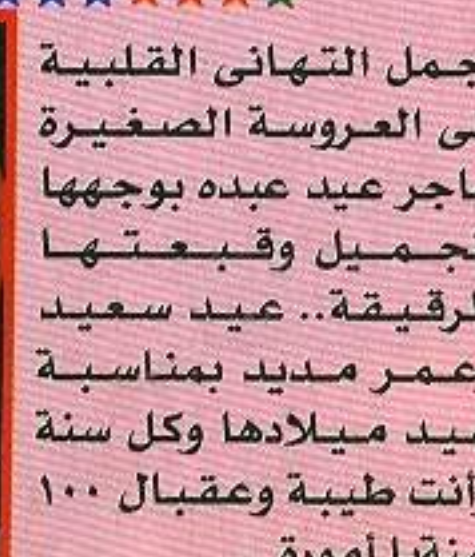 جمل التهانى القلبية
ى العروسة الصغيرة
اجر عيد عبده بوجهها
لجميل وقبعتها
لرقيقة.. عيد سعيد
عمر مديد بمناسبة
يد ميلادها وكل سنة
أنت طيبة وعقبال ١٠٠
نة يا أمورة